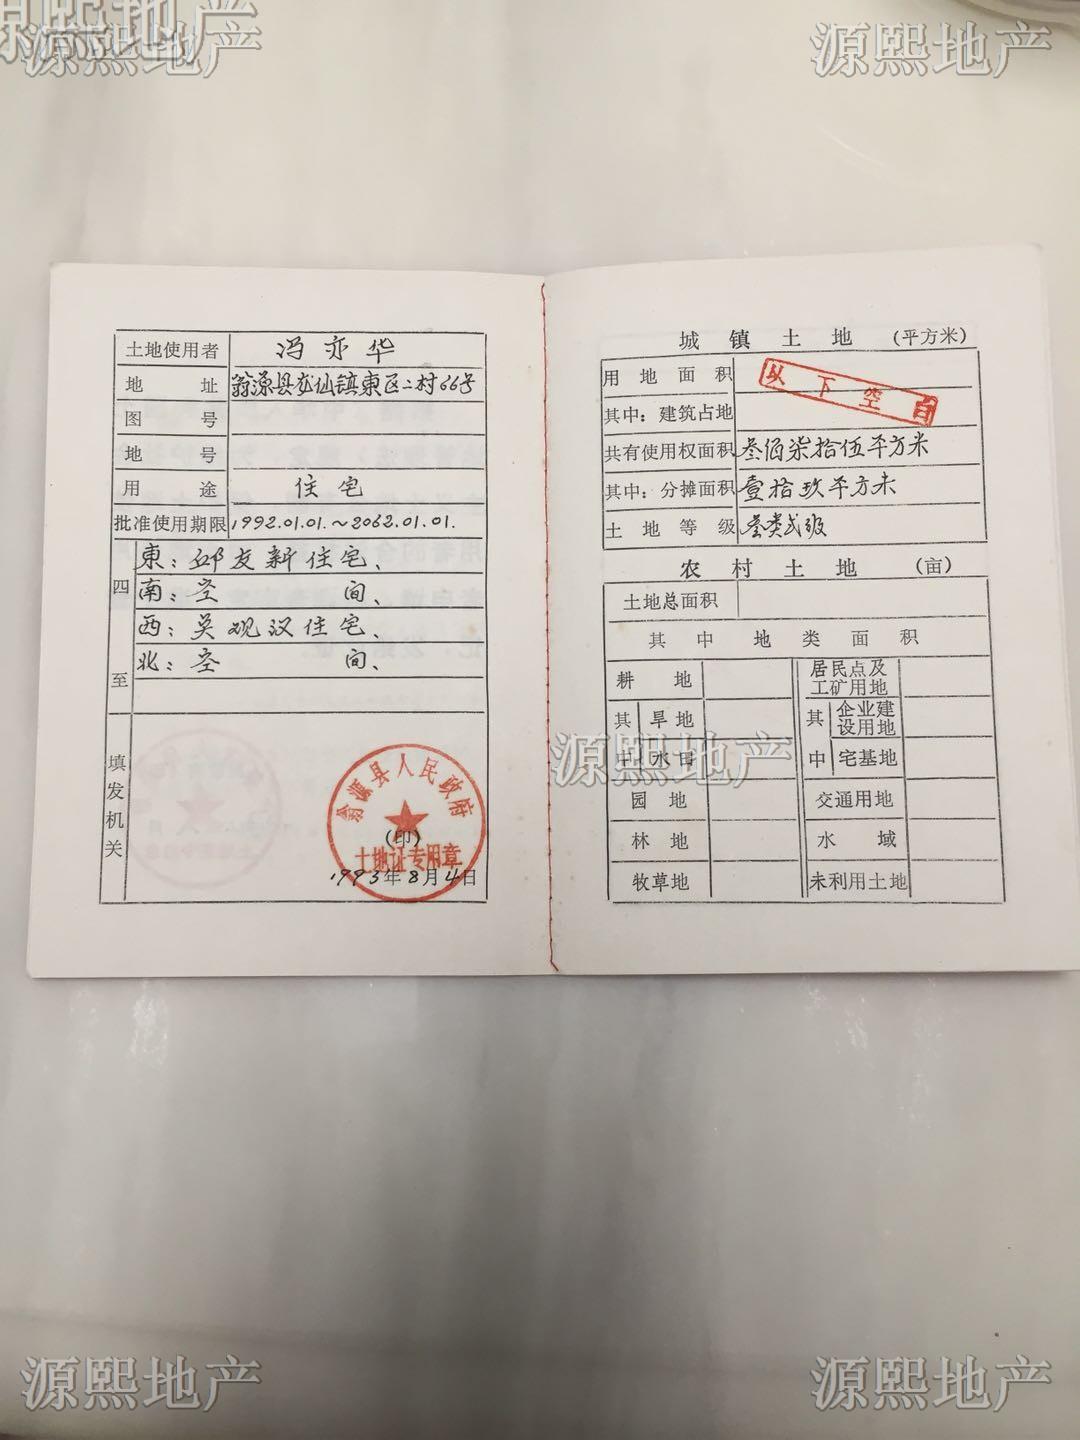 源熙地产
源熙地产
源熙地产
土地使用者 冯亦华
地址 翁源县龙仙镇東区二村66号
图号
地号
用途 住宅
批准使用期限 1992.01.01.~2062.01.01.
四至
東：邱友新住宅、
南：空间、
西：吴观汉住宅、
北：空间、
填发机关
翁源县人民政府
(印)
土地证专用章
1993年8月4日
城镇土地 (平方米)
用地面积
以下空白
其中：建筑占地
共有使用权面积 叁佰柒拾伍平方米
其中：分摊面积 壹拾玖平方米
土地等级 叁类弍级
农村土地 (亩)
土地总面积
其中地类面积
耕地 居民点及工矿用地
其中 旱地 其中 企业建设用地
水田 宅基地
源熙地产
园地 交通用地
林地 水域
牧草地 未利用土地
源熙地产
源熙地产